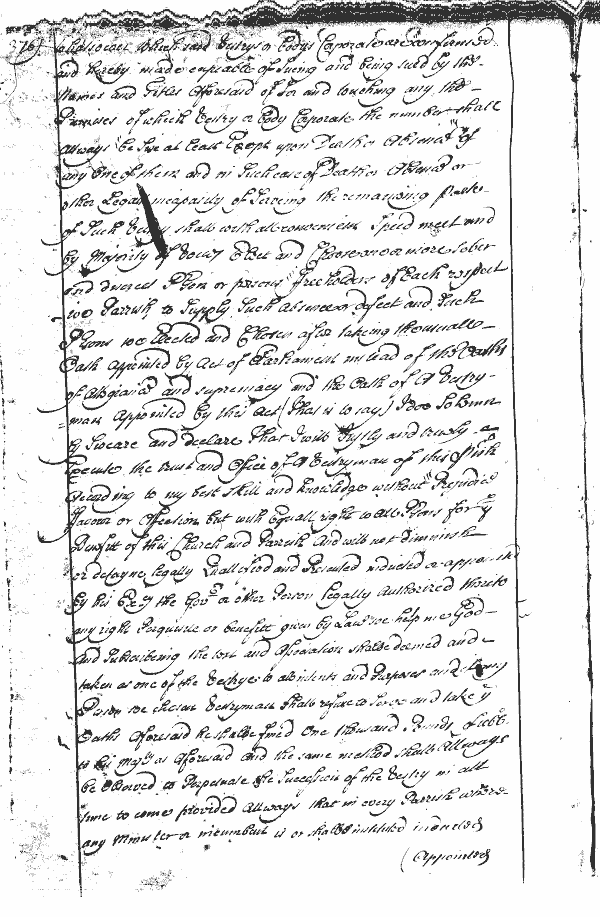 376
which said Vestrys or Bodys Corporate are confirmed
and hereby made capeable of Sueing and being sued by the
Names and Titles aforesaid of for and touching any the
Premises of which Vestry or Body Corporate the number shall
always be five at least Except upon Death or Absence of
any one of them and in Such case of Death or Absence or
other Legall incapasity of Serving the remaining parte
of Such Vestry shall with all convenient Speed meet and
by Majority of Votes Elect and Choose one or more sober
and discreet Pson or persons Freeholders of Each respect
ive Parrish to Supply Such Absence or defect and Such
Psons soe Elected and Chosen after taking the usuall
Oath appointed by Act of Parliament instead of the Oaths
of Allegiance and supremacy and the Oath of A Vestry-
=man Appointed by this Act (that is to say) I doe Solemn
ly Sweare and declare That I will Justly and truely
Execute the trust and Office of A Vestryman of this Prish
According to my best skill and knowledge without Prejudice
favour or affection but with Equall right to all Psons for ye
Benefitt of this Church and Parrish And will not diminish
or delayne legally Quallifyed and Presented inducted or appointed
by his Exc:y the Gov:r or other Person legally Authorized thereto
any right Perquisite or benefitt given by Law soe help me God
and Subscribing the test and Association shall be deemed and
taken as one of the Vestrye to all intents and Purposes and if any
Person soe Elected Vestryman Shall refuse to Serve and take ye
Oaths aforesaid he shall be fined One thousand Pounds of
to his Maj:ty as aforesaid and the same method shall Allways
be Observed to Perpetuate the Succession of the Vestry in all
time to come provided Allways that in every Parrish where
any Minister or incumbent is or shall be instituted inducted
(Appointed